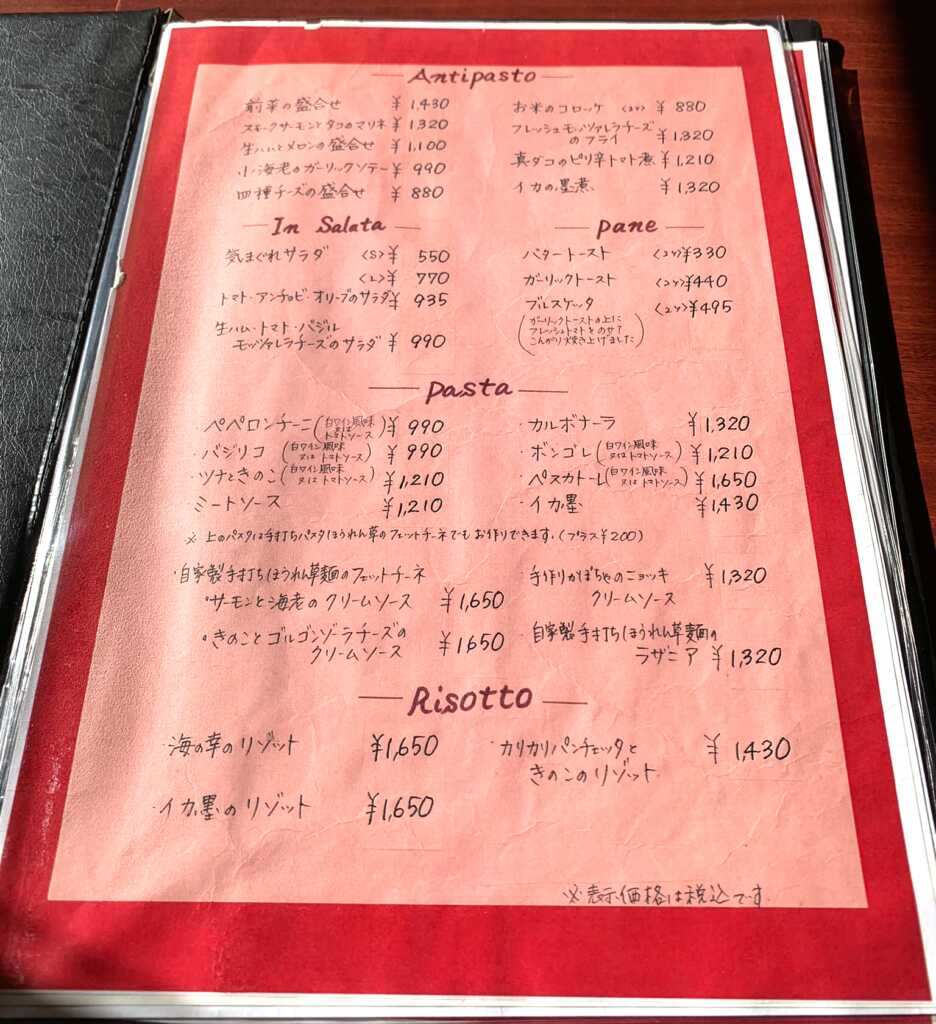 Antipasto
前菜の盛合せ ¥1,430
スモークサーモンとタコのマリネ ¥1,320
生ハムとメロンの盛合せ ¥1,100
小海老のガーリックソテー ¥990
四種チーズの盛合せ ¥880
お米のコロッケ <2ケ> ¥880
フレッシュモッツァレラチーズ
のフライ ¥1,320
真ダコのピリ辛トマト煮 ¥1,210
イカの墨煮 ¥1,320
In Salata
気まぐれサラダ <S> ¥550
<L> ¥770
トマト・アンチョビ・オリーブのサラダ ¥935
生ハム・トマト・バジル
モッツァレラチーズのサラダ ¥990
pane
バタートースト <2ケ>¥330
ガーリックトースト <2ケ>¥440
ブルスケッタ <2ケ>¥495
(ガーリックトーストの上に
フレッシュトマトをのせて
こんがり焼き上げました)
pasta
・ペペロンチーニ(白ワイン風味又はトマトソース) ¥990
・バジリコ(白ワイン風味又はトマトソース) ¥990
・ツナときのこ(白ワイン風味又はトマトソース) ¥1,210
・ミートソース ¥1,210
・カルボナーラ ¥1,320
・ボンゴレ(白ワイン風味又はトマトソース) ¥1,210
・ペスカトーレ(白ワイン風味又はトマトソース) ¥1,650
・イカ墨 ¥1,430
※ 上のパスタは手打ちパスタほうれん草のフェットチーネでもお作りできます。(プラス¥200)
・自家製手打ちほうれん草麺のフェットチーネ
・サーモンと海老のクリームソース ¥1,650
・きのことゴルゴンゾーラチーズの
クリームソース ¥1650
・手作りかぼちゃのニョッキ ¥1,320
クリームソース
・自家製手打ちほうれん草麺の
ラザニア ¥1,320
Risotto
・海の幸のリゾット ¥1,650
・イカ墨のリゾット ¥1,650
・カリカリパンチェッタと ¥1,430
きのこのリゾット
※表示価格は税込です。